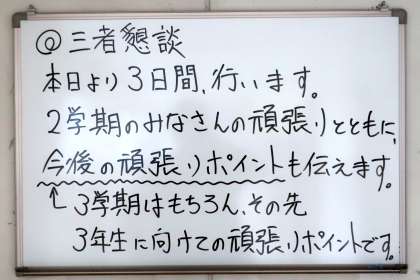 @三者懇談
本日より3日間、行います。
2学期のみなさんの頑張りとともに、
今後の頑張りポイントも伝えます。
↑3学期はもちろん、その先
3年生に向けての頑張りポイントです。